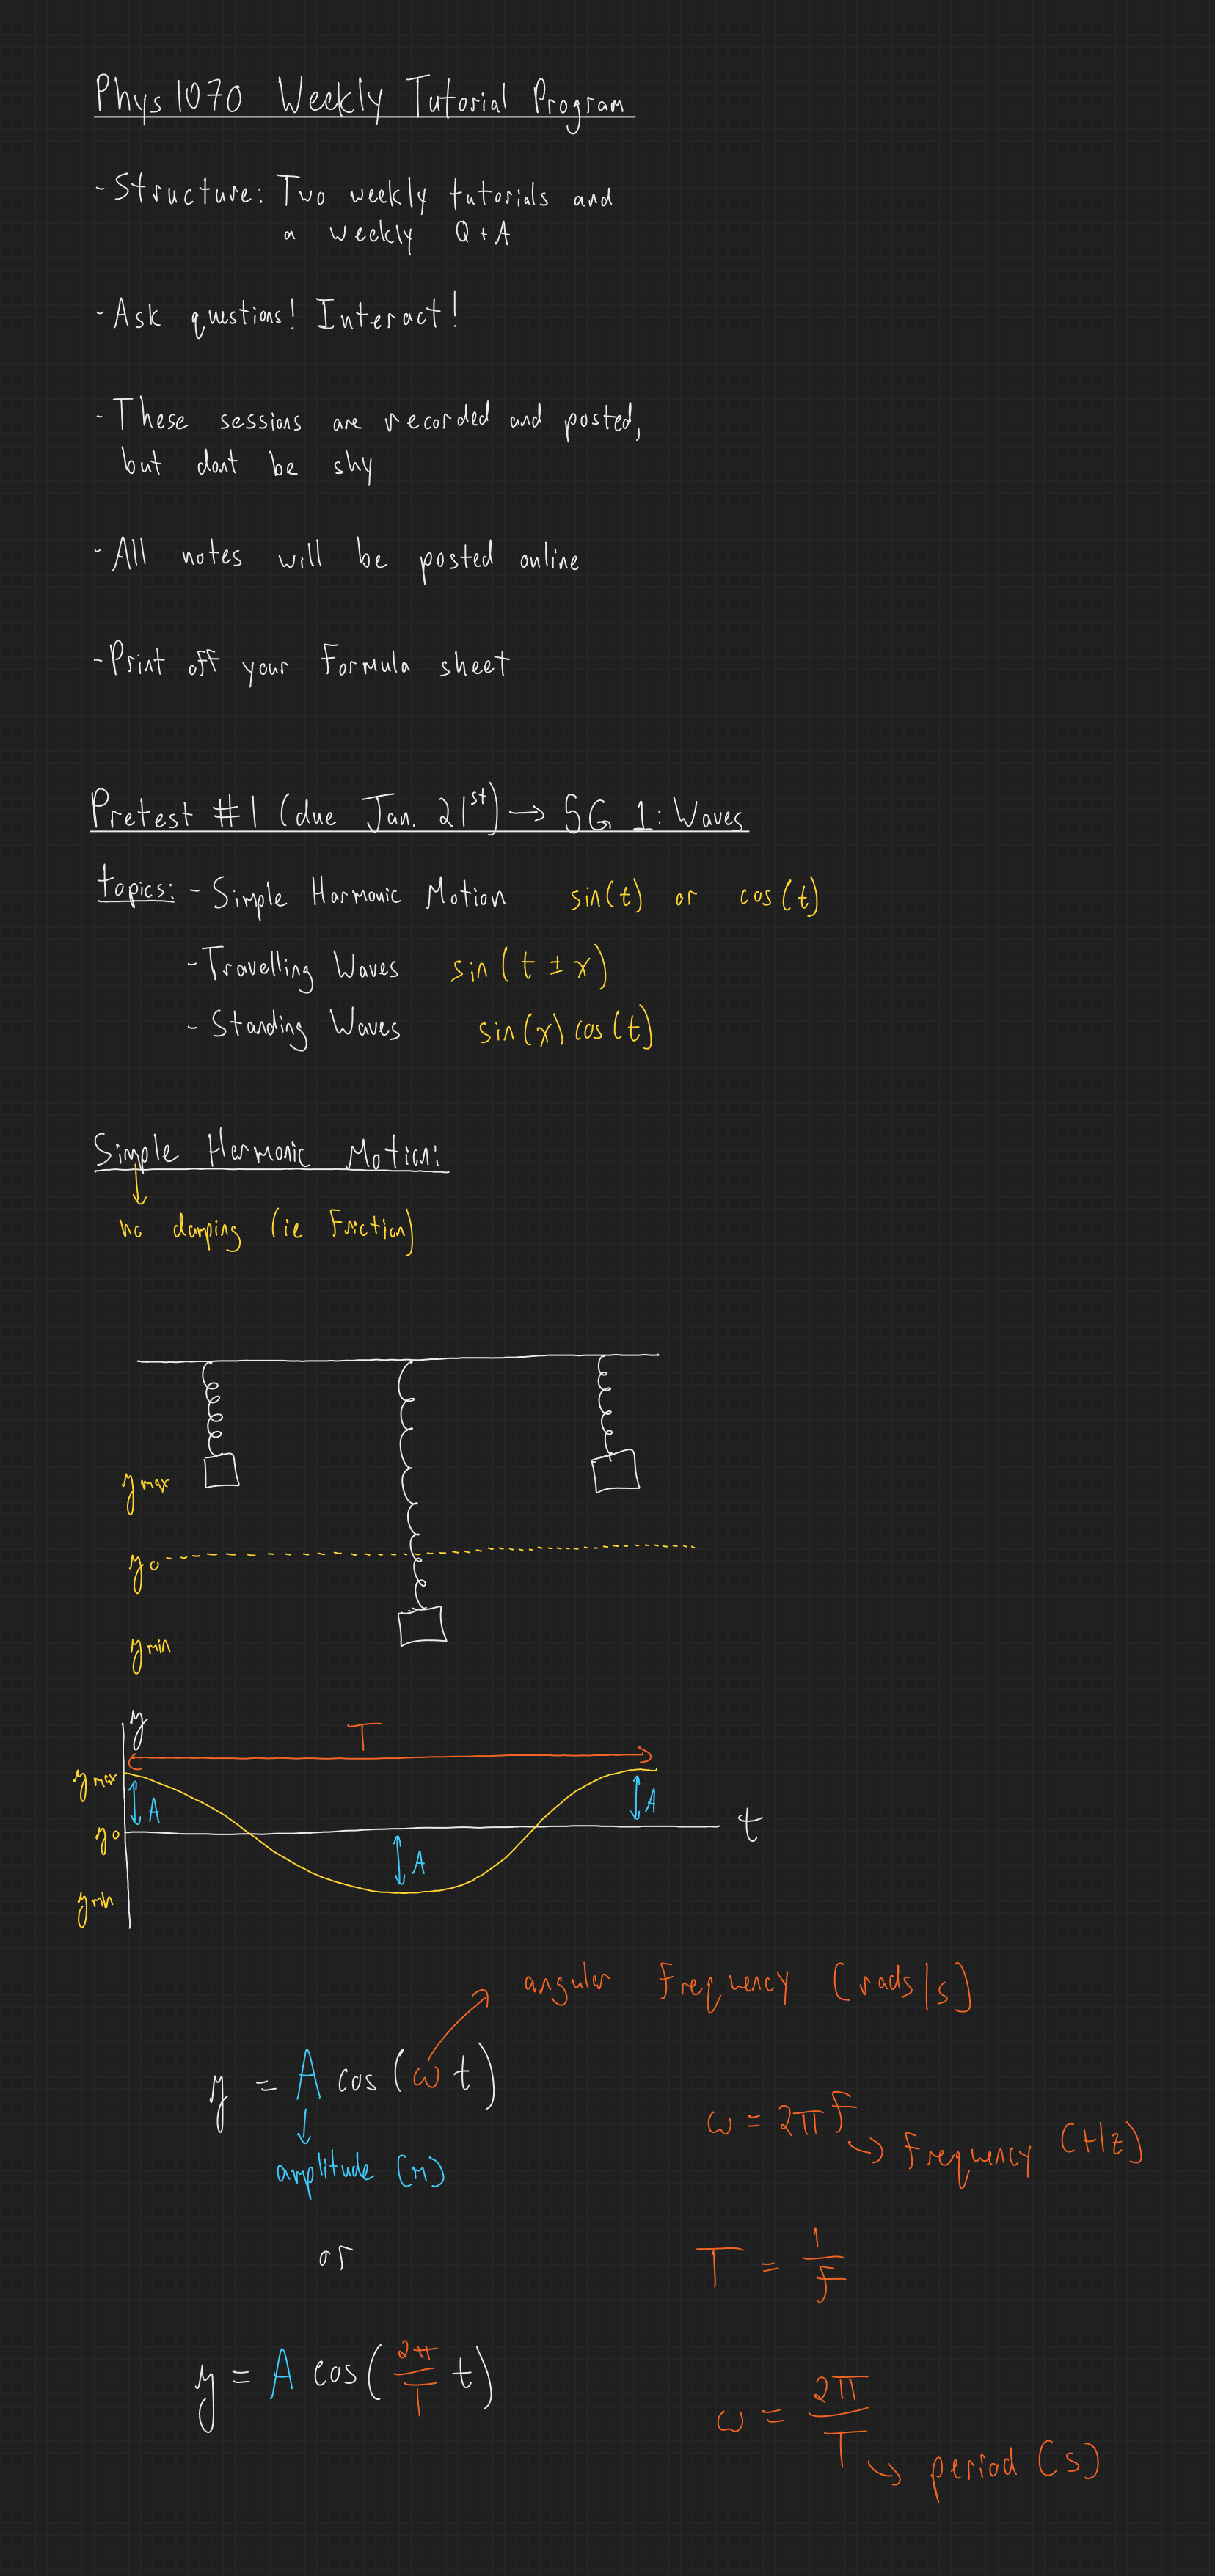 Phys 1070 Weekly Tutorial Program
- Structure: Two weekly tutorials and
a weekly Q + A
- Ask questions! Interact!
- These sessions are recorded and posted,
but dont be shy
- All notes will be posted online
- Print off your Formula sheet
Pretest #1 (due Jan. 21st) → SG 1: Waves
topics: - Simple Harmonic Motion sin(t) or cos(t)
- Travelling Waves sin(t ± x)
- Standing Waves sin(x) cos(t)
Simple Harmonic Motion:
no damping (ie Friction)
y max
y o
y min
y
T
y max
A
A
y o
t
A
y min
angular Frequency (rads/s)
y = A cos(ωt)
ω = 2πf
Frequency (Hz)
amplitude (m)
or
T = 1/f
y = A cos(2π/T t)
ω = 2π/T
period (s)